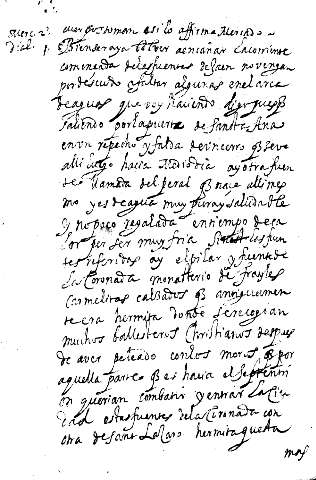 aver que toman asi lo affirma Mercado.
començada de las fuentes de Jaen no vengan
por descuido a faltar algunas en el arca
de aguas que voy haziendo digo pues q
saliendo por la puerta de Santa Ana
en un repecho y falda de un cerro q se ve
alli luego hacia ay otra fuen
te llamada del peral q naçe alli mes
mo y es de agua muy pura y saludable
y no poco regalada en tiempo de ca
lor por ser muy fria sin estas fuen
tes referidas ay el pilar y fuente de
la Coronada monasterio de frayles
Carmelitas calçados q antiguamen
te era hermita donde se recogian
muchos ballesteros christianos despues
de aver peleado con los moros q por
aquella parte q es hacia el septentri
on querian combatir y entrar la ciu
dad estas fuentes de la Coronada con
otra de Sant Lazaro hermita questa
mas